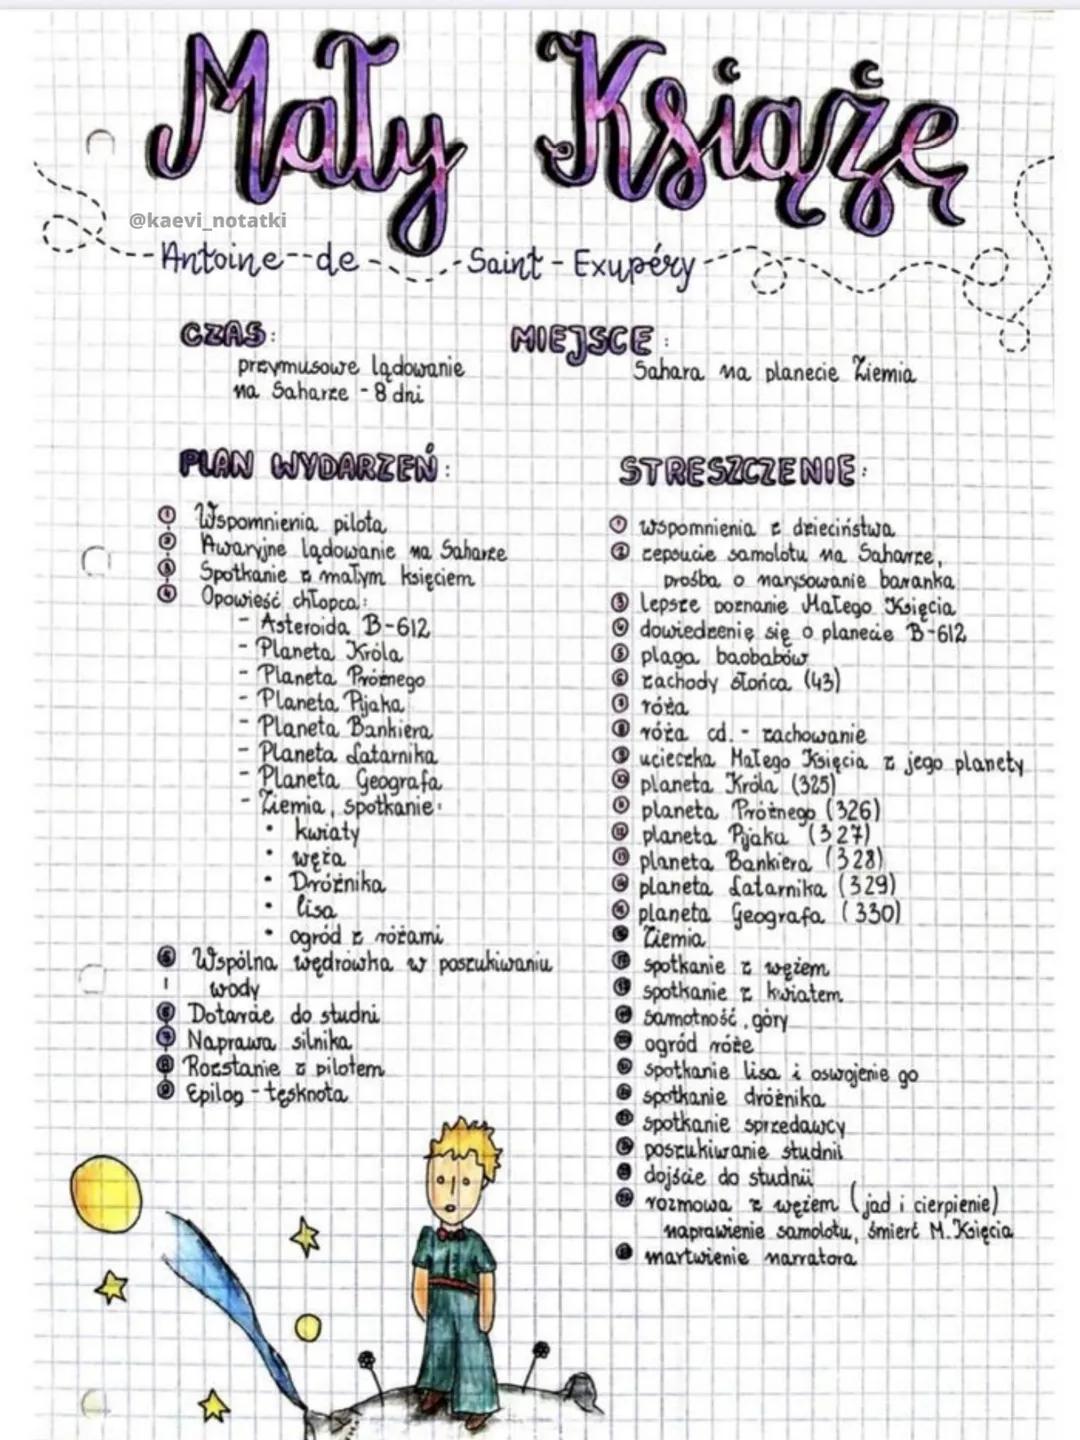 Mały Książę
@kaevi_notatki
Antoine--de - Saint - Exupéry
CZAS:
przymusowe lądowanie
na Saharze - 8 dni
MIEJSCE:
Sahara na planecie Ziemia
PLAN WYDARZEŃ:
1 Wspomnienia pilota
2 Awaryjne lądowanie na Saharze
3 Spotkanie z małym księciem
4 Opowieść chłopca:
- Asteroida B-612
- Planeta Króla
- Planeta Próżnego
- Planeta Pijaka
- Planeta Bankiera
- Planeta Latarnika
- Planeta Geografa
- Ziemia, spotkanie:
• kwiaty
• węża
• Dróżnika
• lisa
• ogród z różami
5 Wspólna wędrówka w poszukiwaniu
wody
6 Dotarcie do studni
7 Naprawa silnika
8 Rozstanie z pilotem
9 Epilog - tęsknota
STRESZCZENIE:
1 wspomnienia z dzieciństwa
2 zepsucie samolotu na Saharze,
prośba o narysowanie baranka
3 lepsze poznanie Małego Księcia
4 dowiedzenię się o planecie B-612
5 plaga baobabów
6 zachody słońca (43)
7 róża
8 róża cd. - zachowanie
9 ucieczka Małego Księcia z jego planety
10 planeta Króla (325)
11 planeta Próżnego (326)
12 planeta Pijaka (327)
13 planeta Bankiera (328)
14 planeta Latarnika (329)
15 planeta Geografa (330)
Ziemia
spotkanie z wężem
spotkanie z kwiatem
samotność, góry
ogród róże
spotkanie lisa i oswojenie go
spotkanie dróżnika
spotkanie sprzedawcy
poszukiwanie studni
dojście do studni
rozmowa z wężem (jad i cierpienie)
naprawienie samolotu, śmierć M. Księcia
martwienie narratora